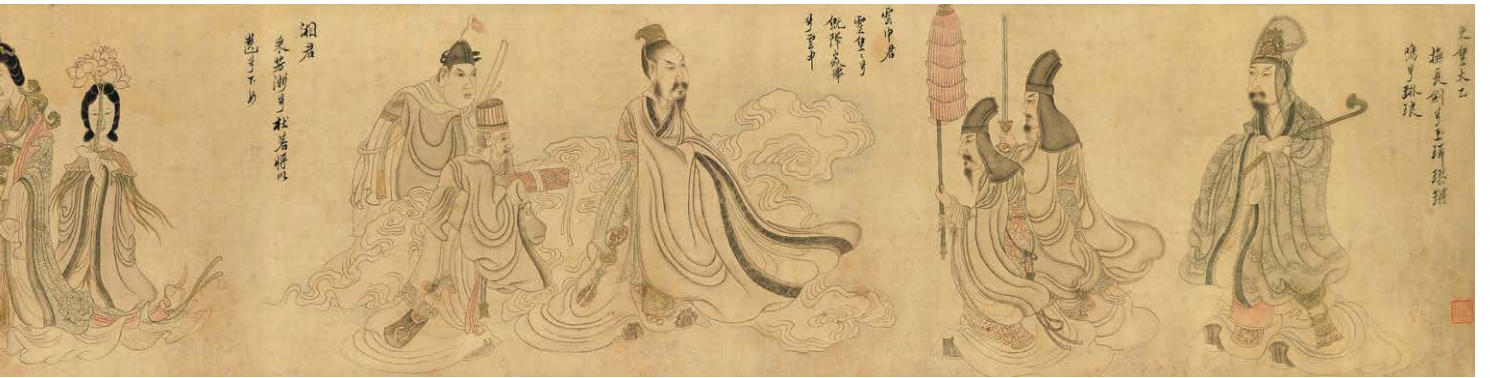 東皇太乙
撫長劍兮玉珥璆鏘
鳴兮琳琅
雲中君
靈皇〻兮
既降焱舉
兮雲中
湘君
采芳洲兮杜若將以
遺兮下女